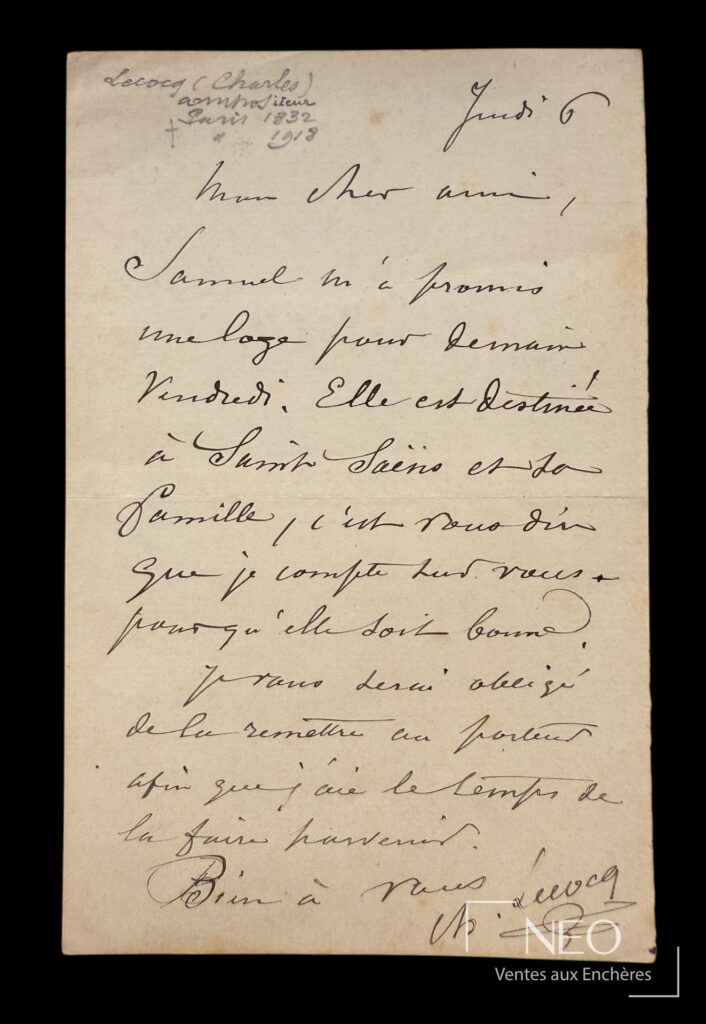 Lecocq (Charles)
compositeur
Paris 1832
† " 1918
Jeudi 6
Mon cher ami,
Samuel m'a promis
une loge pour demain
Vendredi. Elle est destinée
à Saint Saëns et sa
famille, c'est vous dire
que je compte sur vous
pour qu'elle soit bonne.
Je vous serai obligé
de la remettre au porteur
afin que j'aie le temps de
la faire parvenir.
Bien à vous
Ch. Lecocq
NEO
Ventes aux Enchères